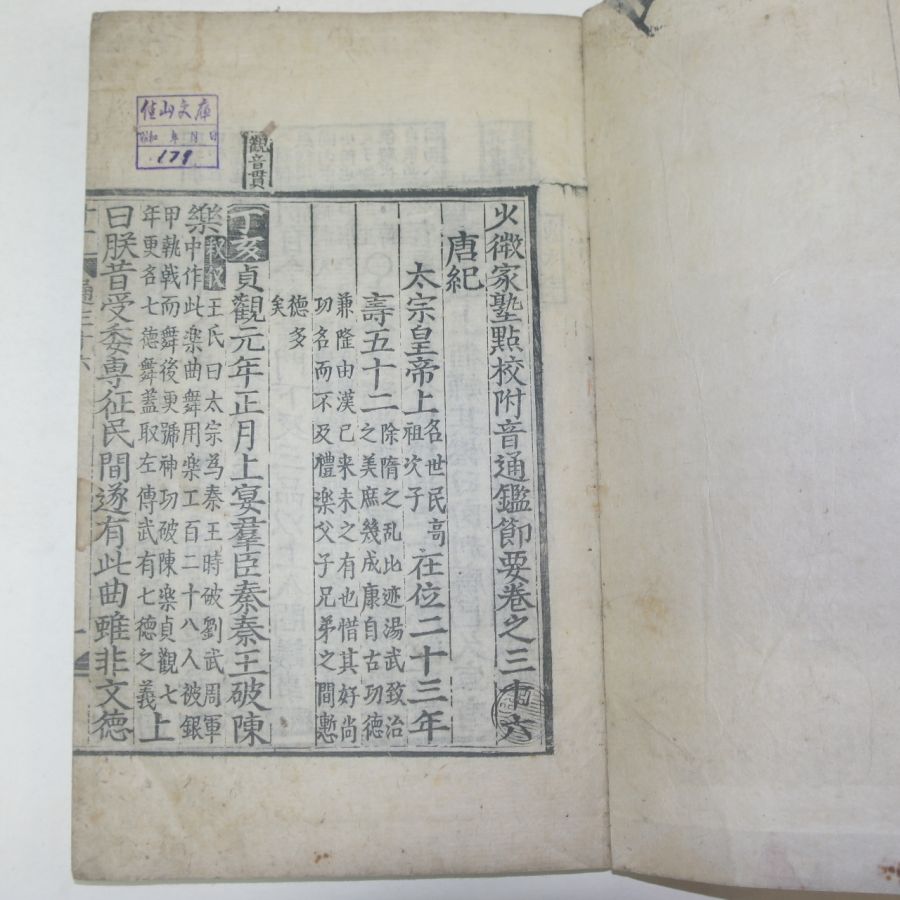 少微家塾點校附音通鑑節要卷之三十六
唐紀
太宗皇帝上 名世民高祖次子 在位二十三年
壽五十二 除隋之乱比迹湯武致治之美庶幾成康自古功德
兼隆由漢已来未之有也惜其好尚功名而不及禮楽父子兄弟之間慙
德多矣
丁亥 貞觀元年正月上宴羣臣奏秦王破陳
楽 釈義 王氏曰太宗為秦王時破劉武周軍中作此楽曲舞用楽工百二十八人被銀
甲執戟而舞後更號神功破陳楽貞觀七年更名七德舞盖取左傳武有七德之義 上
曰朕昔受委專征民間遂有此曲雖非文德
觀音貫
佳山文庫
昭和 年 月 日
179